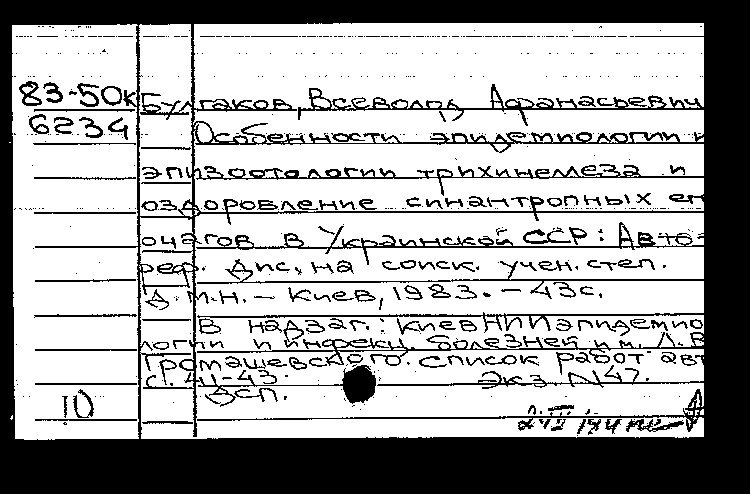 83-50к Булгаков, Всеволод Афанасьевич
6234 Особенности эпидемиологии и
эпизоотологии трихинеллеза и
оздоровление синантропных ег
очагов в Украинской ССР: Авто-
реф. дис. на соиск. учен. степ.
д.м.н. - Киев, 1983. - 43с.
В надзаг.: Киев НИИ эпидемио
логии и инфекц. болезней им. Л. В
Громашевского. Список работ авт
с. 41-43. Экз. N47.
10 дсп.